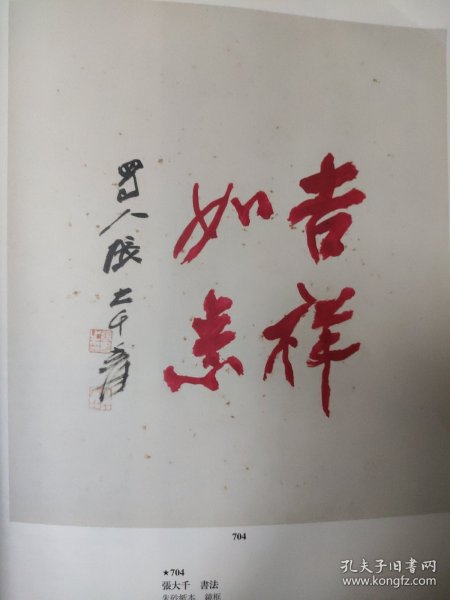 吉祥
如意
蜀人張大千爰
704
★704
張大千 書法
朱砂紙本 鏡框
孔夫子旧书网